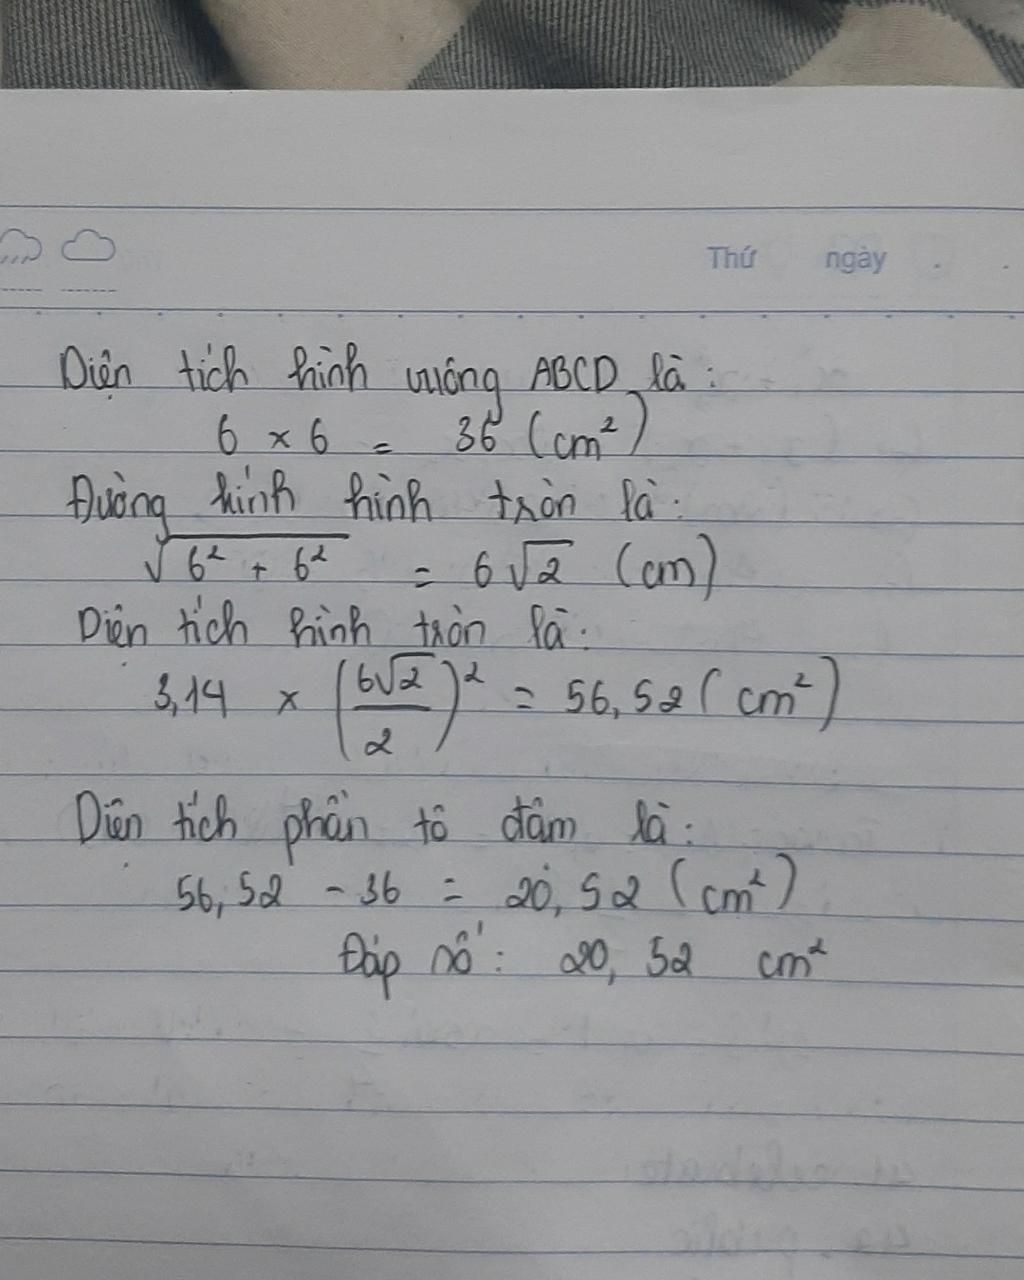 Thứ ngày
Diện tích hình vuông ABCD là:
6 × 6 = 36 (cm²)
Đường kính hình tròn là:
√(6² + 6²) = 6√2 (cm)
Diện tích hình tròn là:
3,14 × (6√2/2)² = 56,52 (cm²)
Diện tích phần tô đậm là:
56,52 - 36 = 20,52 (cm²)
Đáp số: 20,52 cm²